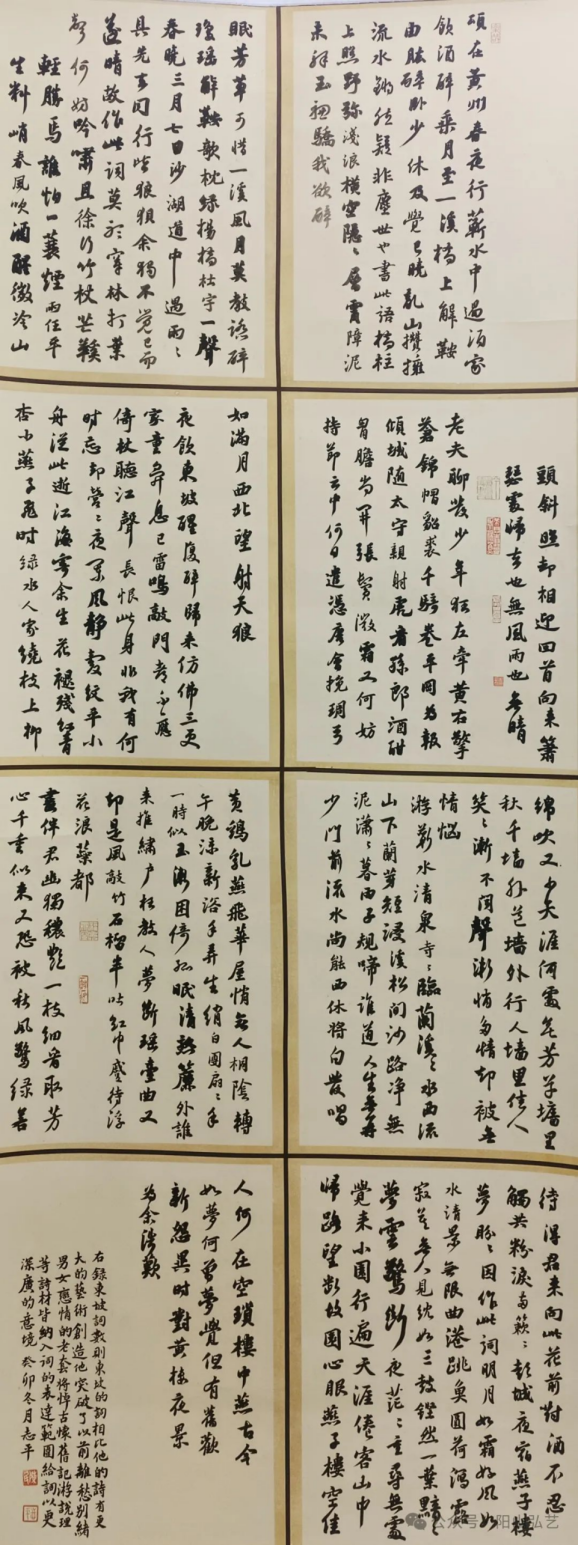 頃在黃州春夜行蘄水中過酒家
飲酒醉乘月至一溪橋上解鞍
曲肱醉臥少休及覺已曉亂山攢擁
流水鏘然疑非塵世也書此語橋柱
上照野瀰淺浪橫空隱〻層霄障泥
未解玉驄驕我欲醉
眠芳草可惜一溪風月莫教踏碎
瓊瑤解鞍欹枕綠楊橋杜宇一聲
春曉三月七日沙湖道中遇雨〻
具先去同行皆狼狽余獨不覺已而
遂晴故作此詞莫聽穿林打葉
聲何妨吟嘯且徐行竹杖芒鞋
輕勝馬誰怕一蓑煙雨任平
生料峭春風吹酒醒微冷山
頭斜照却相迎回首向來蕭
瑟處歸去也無風雨也無晴
老夫聊發少年狂左牽黃右擎
蒼錦帽貂裘千騎卷平岡為報
傾城隨太守親射虎看孫郎酒酣
胸膽尚開張鬢微霜又何妨
持節雲中何日遣馮唐會挽琱弓
如滿月西北望射天狼
夜飲東坡醒復醉歸來仿佛三更
家童鼻息已雷鳴敲門都不應
倚杖聽江聲長恨此身非我有何
時忘却營〻夜闌風靜縠紋平小
舟從此逝江海寄余生花褪殘紅青
杏小燕子飛時綠水人家繞枝上柳
綿吹又少天涯何處無芳草墻里
秋千墻外道墻外行人墻里佳人
笑〻漸不聞聲漸悄多情却被無
情惱
游蘄水清泉寺〻臨蘭溪〻水西流
山下蘭芽短浸溪松間沙路淨無
泥瀟〻暮雨子規啼誰道人生無再
少門前流水尚能西休將白發唱
黃鷄乳燕飛華屋悄無人桐陰轉
午晚涼新浴手弄生綃白團扇〻手
一時似玉漸困倚孤眠清熟簾外誰
來推繡戶枉教人夢斷瑤臺曲又
却是風敲竹石榴半吐紅巾蹙待浮
花浪蕊都
盡伴君幽獨穠艷一枝細看取芳
心千重似束又恐被秋風驚綠若
待得君來向此花前對酒不忍
觸共粉淚兩簌〻彭城夜宿燕子樓
夢盼〻因作此詞明月如霜好風如
水清景無限曲港跳魚圓荷瀉露
寂莫無人見紞如三鼓鏗然一葉黯〻
夢雲驚斷夜茫〻重尋無處
覺來小園行遍天涯倦客山中
歸路望斷故園心眼燕子樓空佳
人何在空鎖樓中燕古今
如夢何曾夢覺但有舊歡
新怨異時對黃樓夜景
為余浩歎
右錄東坡詞數則東坡的詞相比他的詩有更
大的藝術創造他突破了以前離愁別緒
男女戀情的老套將悼古懷舊記游說理
等詩材皆納入詞的表達範圍給詞以更
深廣的意境 癸卯冬月志平
公众号 阳光弘艺